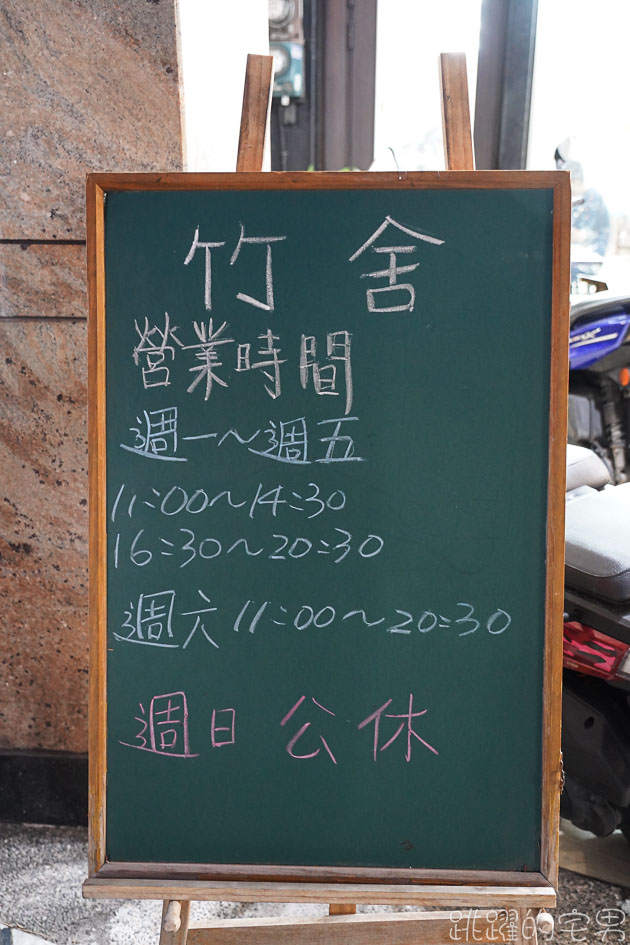 竹舍
營業時間
週一～週五
11:00～14:30
16:30～20:30
週六 11:00～20:30
週日 公休
跳躍的宅男